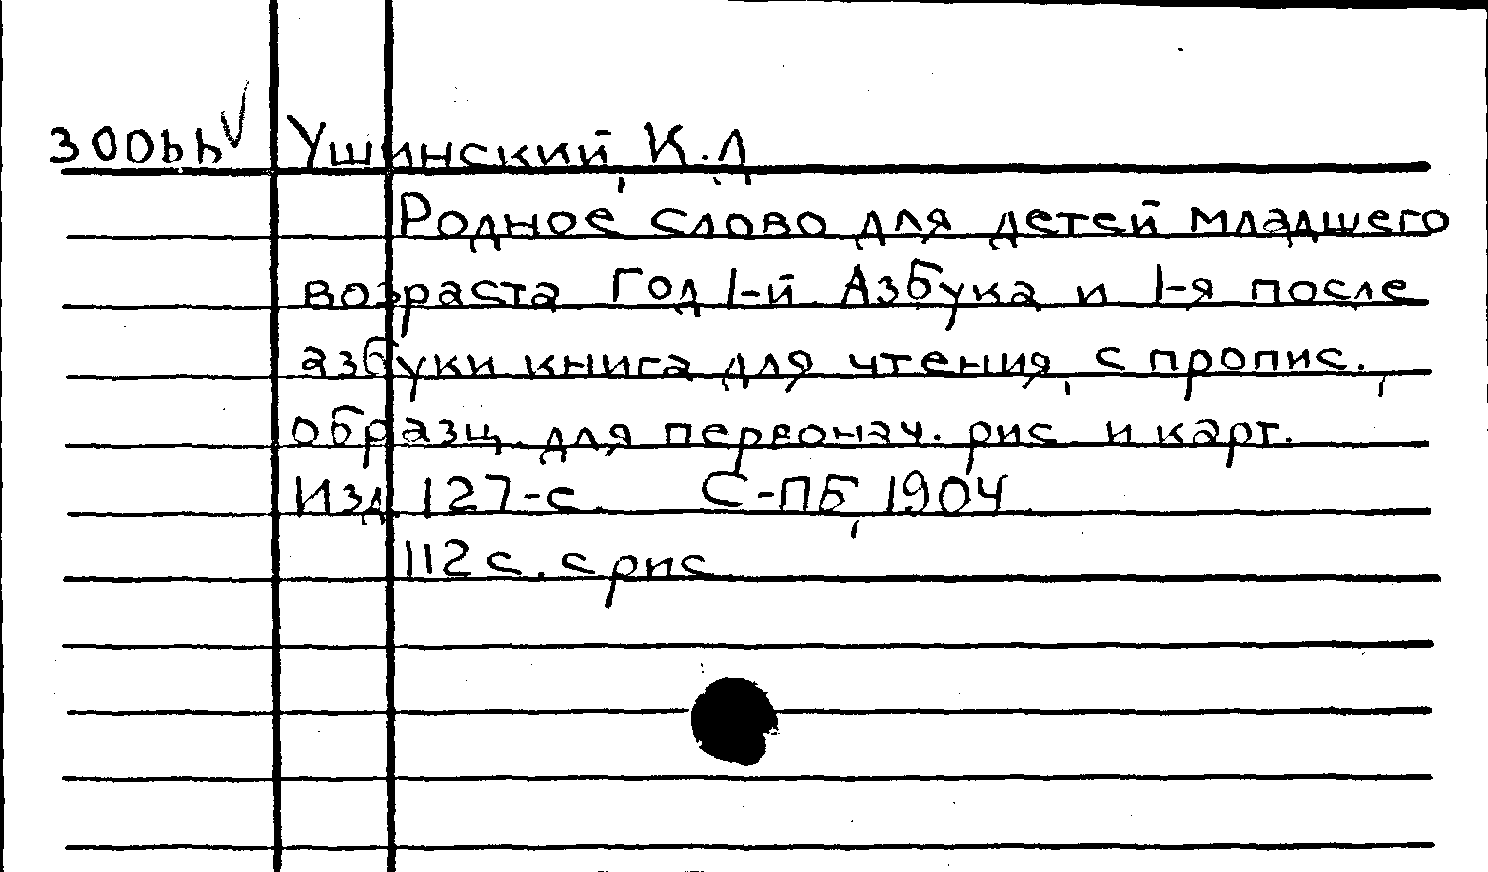 300bh Ушинский, К.Д
Родное слово для детей младшего
возраста Год 1-й. Азбука и 1-я после
азбуки книга для чтения, с пропис.,
образц. для первонач. рис. и карт.
Изд. 127-е. С-ПБ, 1904.
112 с. с рис.